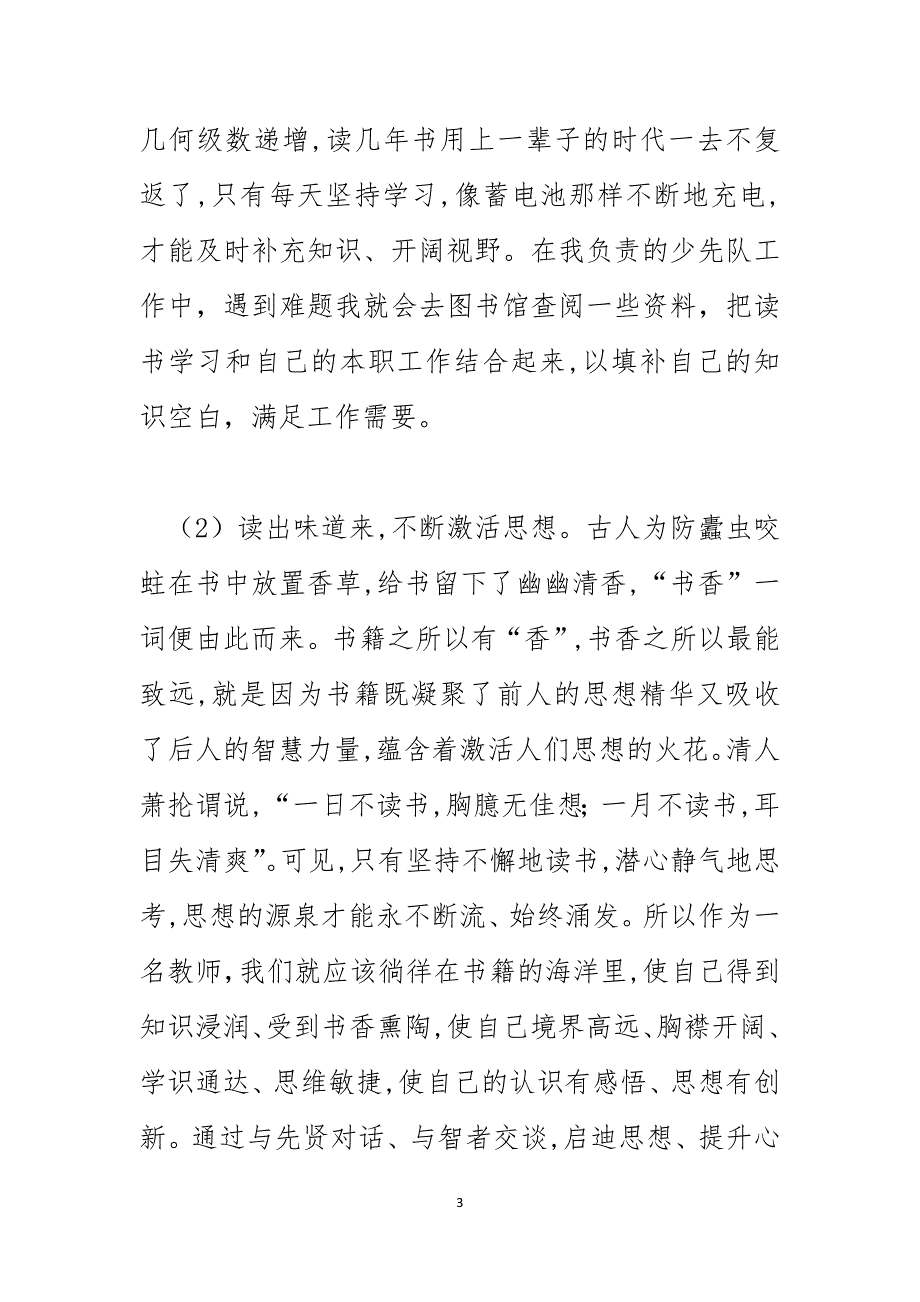 几何级数递增,读几年书用上一辈子的时代一去不复
返了,只有每天坚持学习,像蓄电池那样不断地充电,
才能及时补充知识、开阔视野。在我负责的少先队工
作中，遇到难题我就会去图书馆查阅一些资料，把读
书学习和自己的本职工作结合起来,以填补自己的知
识空白，满足工作需要。
（2）读出味道来,不断激活思想。古人为防蠹虫咬
蛀在书中放置香草,给书留下了幽幽清香,“书香”一
词便由此而来。书籍之所以有“香”,书香之所以最能
致远,就是因为书籍既凝聚了前人的思想精华又吸收
了后人的智慧力量,蕴含着激活人们思想的火花。清人
萧抡谓说,“一日不读书,胸臆无佳想；一月不读书,耳
目失清爽”。可见,只有坚持不懈地读书,潜心静气地思
考,思想的源泉才能永不断流、始终涌发。所以作为一
名教师，我们就应该徜徉在书籍的海洋里,使自己得到
知识浸润、受到书香熏陶,使自己境界高远、胸襟开阔、
学识通达、思维敏捷,使自己的认识有感悟、思想有创
新。通过与先贤对话、与智者交谈,启迪思想、提升心
3